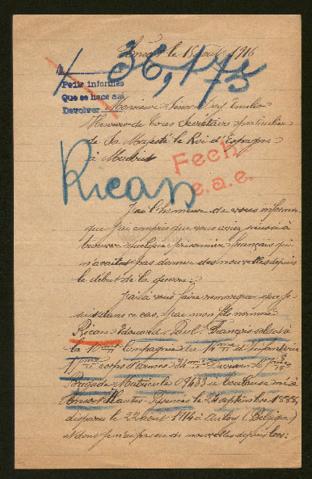 le 15 août 1916
36,175
Pedir informes
Que se hace así
Devolver
Monsieur
Secrétaire particulier
de Sa Majesté le Roi d'Espagne
à Madrid
Fech
e.a.e.
Rican
J'ai l'honneur de vous informer
que j'ai appris que vous avez réussi à
trouver quelque prisonnier français qui
n'avait pas donné des nouvelles depuis
le début de la guerre.
J'ai à vous faire remarquer que je
suis dans ce cas, que mon fils nommé
Rican Edouard Paul François soldat à
la Compagnie du d'Infanterie
corps d'armée Division
Brigade Matricule né à
le 24 septembre 1888
disparu le 22 août 1914 à (Belgique)
et dont je n'ai pas eu de nouvelles depuis lors.